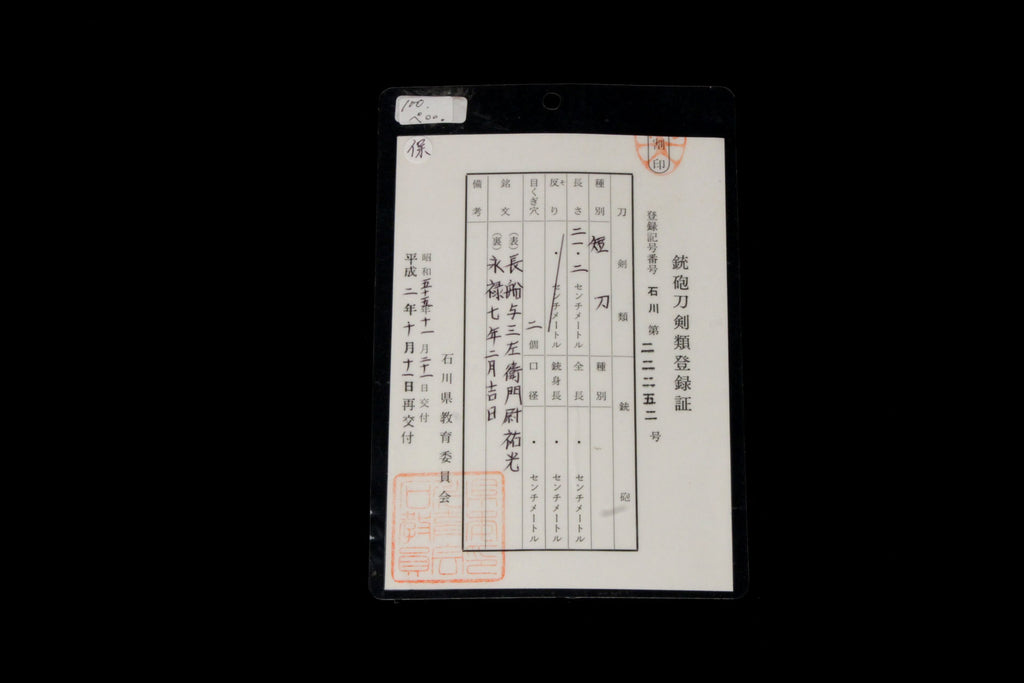 100.
割
印
保
銃砲刀剣類登録証
登録記号番号 石川 第 二二二五二 号
刀剣類
銃砲
種別 短刀
種別
長さ 二一・二 センチメートル
全長 ・ センチメートル
反り ソ ・ センチメートル
銃身長 ・ センチメートル
目くぎ穴 二 個
口径 ・ センチメートル
銘文 (表) 長船与三左衛門尉祐光
(裏) 永禄七年二月吉日
備考
石川県教育委員会
昭和五十五年十一月二十一日交付
平成二年十月十一日再交付